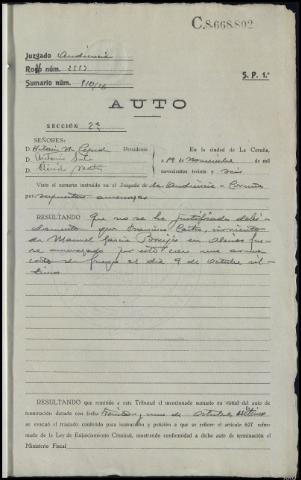 C.8.668.802
Juzgado Audiencia
Rollo núm.
Sumario núm.
S. P. 1.ª
AUTO
SECCIÓN 2ª
SEÑORES:
D. Presidente
D. Antonio
D.
En la ciudad de La Coruña,
a 19 de Noviembre de mil
novecientos treinta y seis
Visto el sumario instruido en el Juzgado de la Audiencia - Coruña
por supuestas amenazas
RESULTANDO Que no se ha justificado debi-
damente que Castro, convecino
de Manuel García en
amenazado por este con una arma
corta de fuego el día 9 de Octubre úl-
timo.
RESULTANDO que remitido a este Tribunal el mencionado sumario en virtud del auto de
terminación dictado con fecha treinta y uno de octubre último
se evacuó el traslado conferido para instrucción y petición a que se refiere el artículo 627 refor-
mado de la Ley de Enjuiciamiento Criminal, mostrando conformidad a dicho auto de terminación el
Ministerio Fiscal